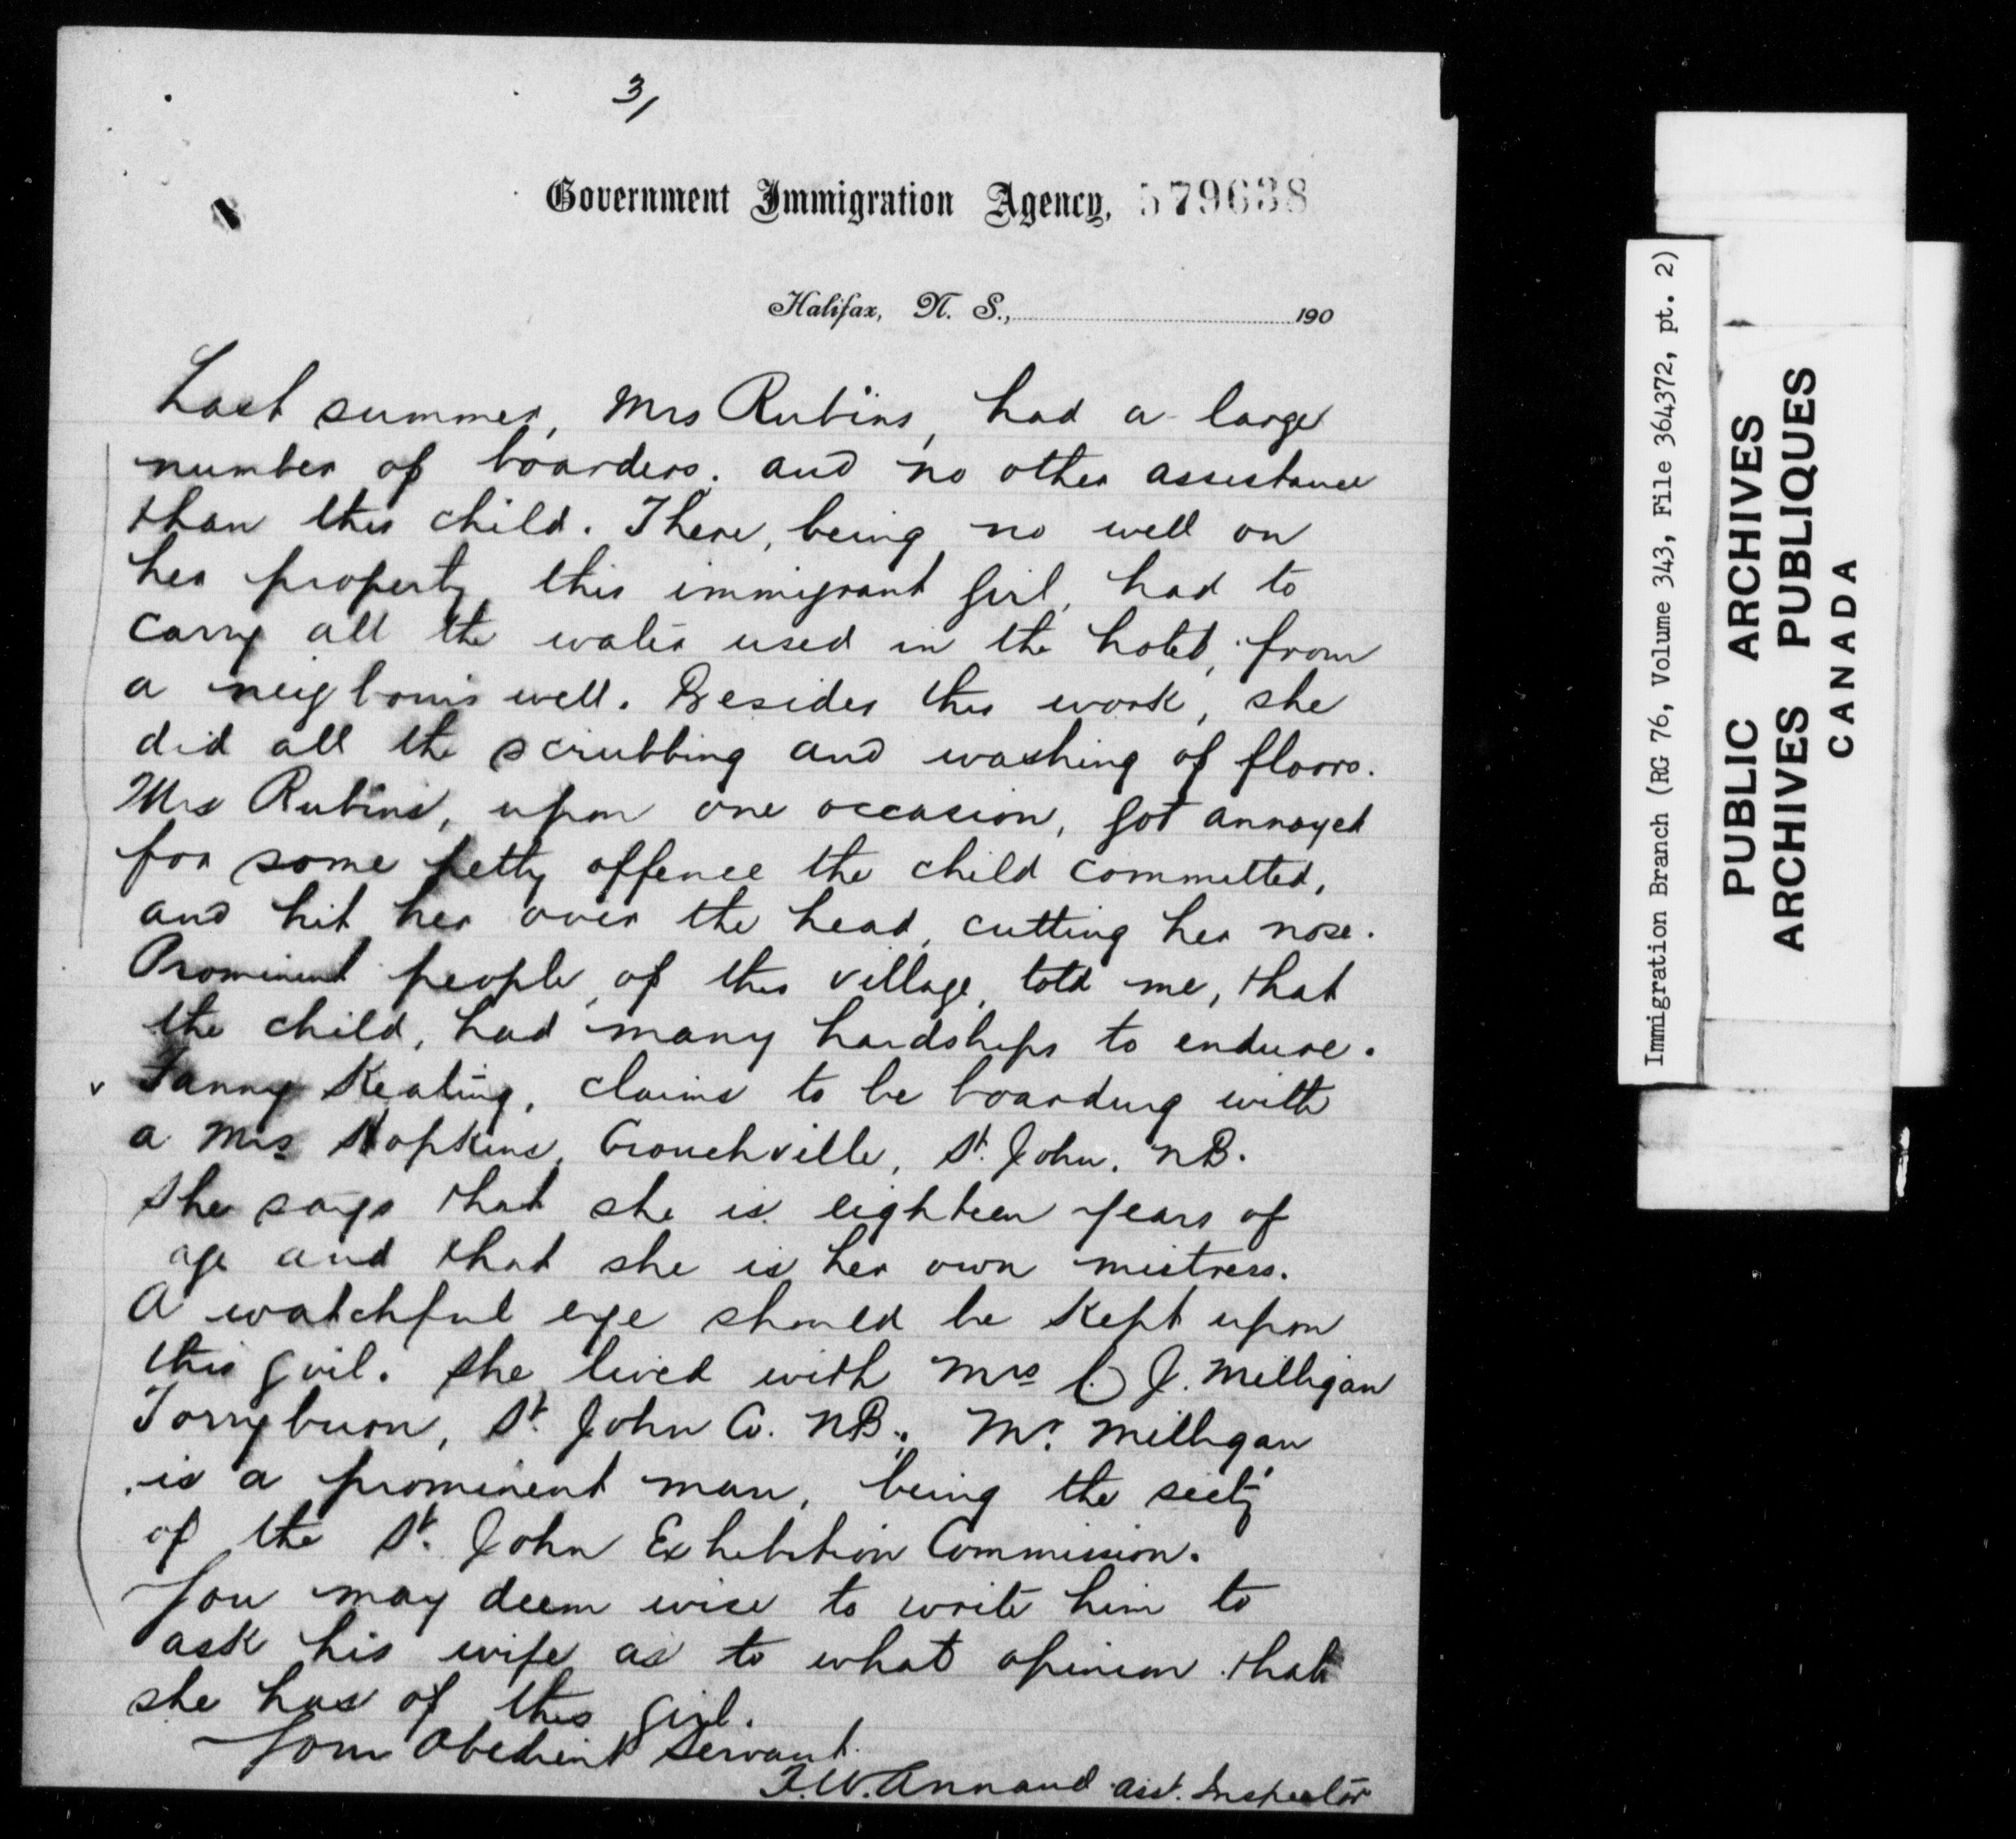 3/
Government Immigration Agency, 579638
Halifax, N. S., 190
Last summer, Mrs Rubins, had a large
number of boarders. and no other assistance
than this child. There, being no well on
her property, this immigrant girl, had to
carry all the water used in the hotel, from
a neigbours well. Besides this work, she
did all the scrubbing and washing of floors.
Mrs Rubins, upon one occasion, got annoyed
for some petty offence the child committed,
and hit her over the head, cutting her nose.
Prominent people, of this village, told me, that
the child, had many hardships to endure.
v Fanny Keating, claims to be boarding with
a Mrs Hopkins, Crouchville, St. John, NB.
She says that she is eighteen years of
age and that she is her own mistress.
A watchful eye should be kept upon
this girl. She lived with Mrs C J. Milligan
Torryburn, St. John Co. NB. Mr. Milligan
is a prominent man, being the secty
of the St. John Exhibition Commission.
You may deem wise to write him to
ask his wife as to what opinion that
she has of this girl.
Your Obedient Servant.
F.W. Annand asst. Inspector
Immigration Branch (RG 76, Volume 343, File 364372, pt. 2)
PUBLIC ARCHIVES
ARCHIVES PUBLIQUES
CANADA